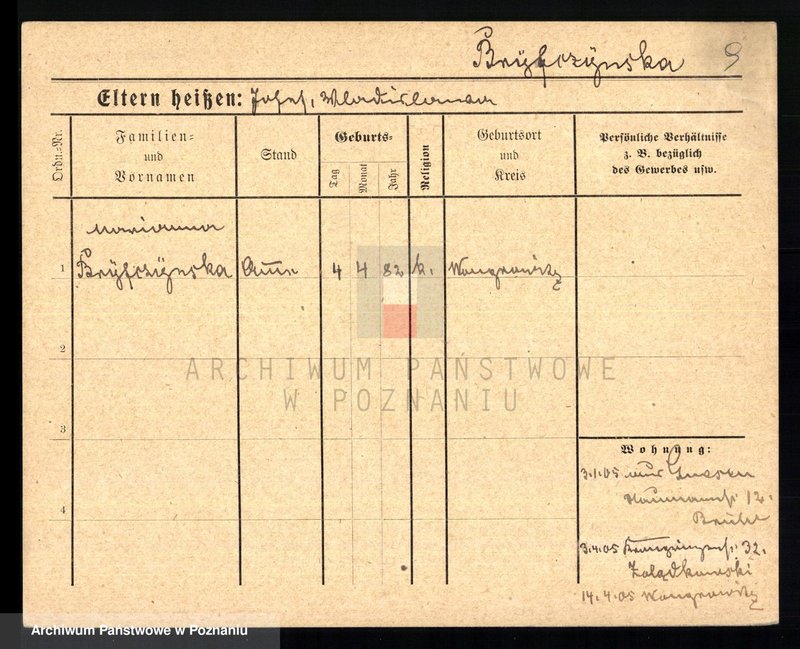 Bryſczynska 9
Eltern heißen: Josef, Wladislawa
Ordn.-Nr.
Familien-
und
Vornamen
Stand
Geburts-
Tag
Monat
Jahr
Religion
Geburtsort
und
Kreis
Persönliche Verhältnisse
z. B. bezüglich
des Gewerbes usw.
Marianna
1 Bryſczynska Amme 4 4 82 k. Wongrowitz
2
ARCHIWUM PAŃSTWOWE
W POZNANIU
3
Wohnung:
3.1.05 aus Gnesen
Naumannstr. 12.
4
3.4.05 32.
Żolądkowski
14.4.05 Wongrowitz
Archiwum Państwowe w Poznaniu